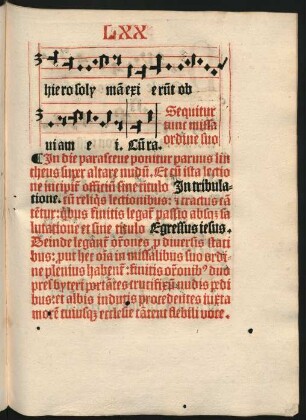 LXX
hierosoly mā exi erūt ob
uiam e i. Cū ra.
Sequitur
tunc missa
ordine suo
In die parasceue ponitur paruus lin
theus super altare nudū. Et cū ista lectio
ne incipit᷑ officiū sine titulo In tribula-
tione. cū reliq̄s lectionibus: ⁊ tractus cā
tētur: q̄bus finitis legat᷑ passio absq̄ sa
lutatione et sine titulo Egressus iesus.
Deinde legāt᷑ orōnes p diuersis stati
bus: put hec oīa in missalibus suo ordi-
ne plenius habent᷑: finitis orōnibꝰ duo
presbyteri portātes crucifixū nudis pedi
bus: et albis induti procedentes iuxta
morē cuiusq̄ ecclesie cātent flebili voce.